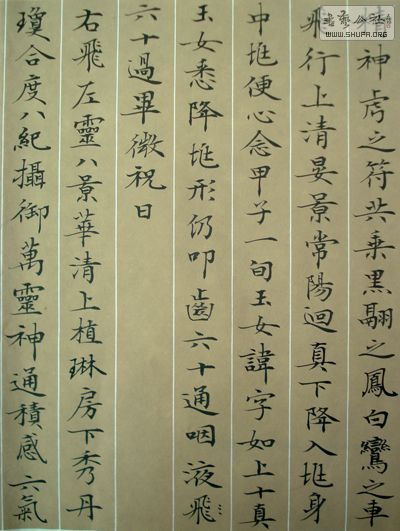 精神虎之符共乘黑翮之鳳白鸞之車
飛行上清晏景常陽迴真下降入身
中便心念甲子一旬玉女諱字如上十真
玉女悉降形仍叩齒六十通咽液飛
六十過畢微祝曰
右飛左靈八景華清上植琳房下秀丹
瓊合度八紀攝御萬靈神通積感六氣
书艺公社
WWW.SHUFA.ORG